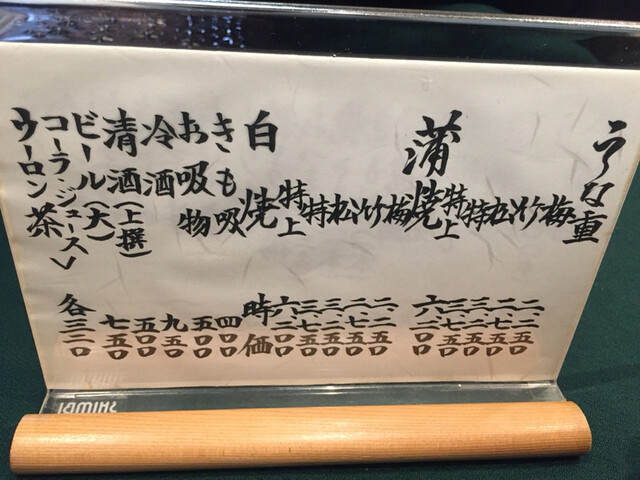 うな重
梅 二、二五〇
竹 二、七五〇
松 三、二五〇
特 三、七五〇
特上 六、二〇〇
蒲焼
梅 二、二五〇
竹 二、七五〇
松 三、二五〇
特 三、七五〇
特上 六、二〇〇
白焼 時価
きも吸
お吸物
冷酒 九五〇
清酒(上撰)
ビール(大) 七五〇
コーラ・ジュース
ウーロン茶 各三三〇